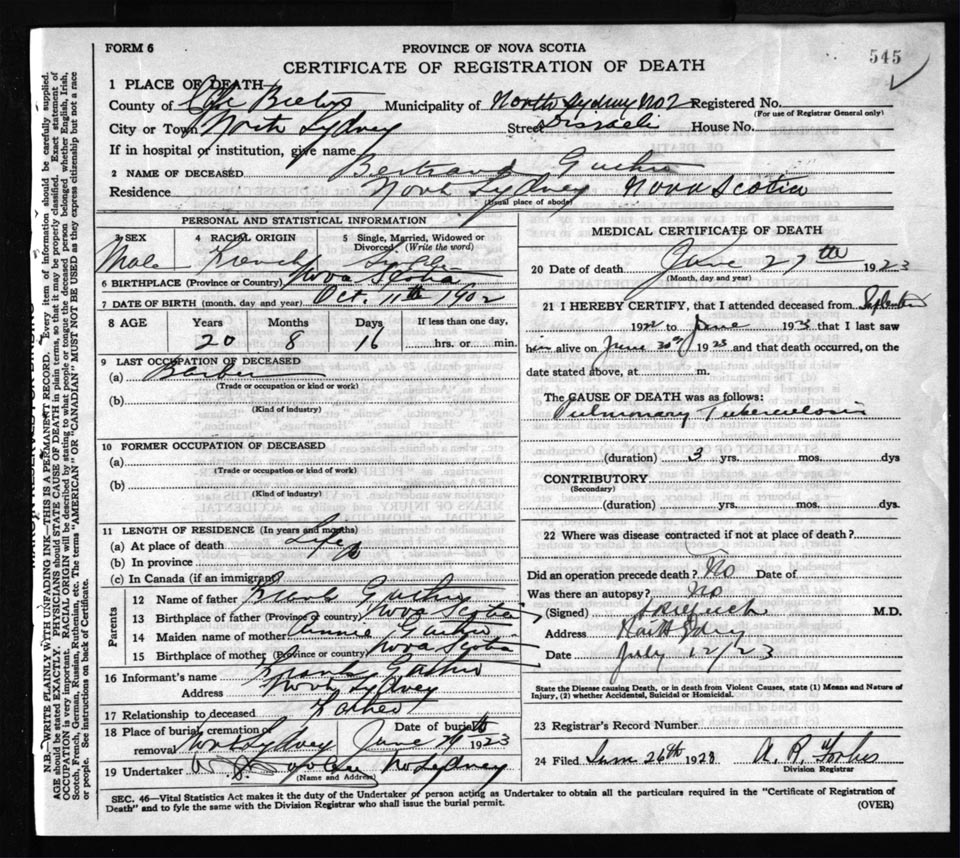 FORM 6
PROVINCE OF NOVA SCOTIA
545
CERTIFICATE OF REGISTRATION OF DEATH
1 PLACE OF DEATH
County of Cape Breton Municipality of North Sydney No 2 Registered No.
(For use of Registrar General only)
City or Town North Sydney Street Disraeli House No.
If in hospital or institution, give name
2 NAME OF DECEASED Bertrand
Residence North Sydney Nova Scotia
(Usual place of abode)
PERSONAL AND STATISTICAL INFORMATION
3 SEX 4 RACIAL ORIGIN 5 Single, Married, Widowed or Divorced (Write the word)
Male French Single
6 BIRTHPLACE (Province or Country) Nova Scotia
7 DATE OF BIRTH (month, day and year) Oct. 11th 1902
8 AGE Years Months Days If less than one day,
20 8 16 hrs. or min.
9 LAST OCCUPATION OF DECEASED
(a) Barber
(Trade or occupation or kind of work)
(b)
(Kind of industry)
10 FORMER OCCUPATION OF DECEASED
(a)
(Trade or occupation or kind of work)
(b)
(Kind of industry)
11 LENGTH OF RESIDENCE (In years and months)
(a) At place of death Life
(b) In province
(c) In Canada (if an immigrant)
Parents
12 Name of father
13 Birthplace of father (Province or country) Nova Scotia
14 Maiden name of mother Annie
15 Birthplace of mother (Province or country) Nova Scotia
16 Informant's name
Address North Sydney
17 Relationship to deceased Father
18 Place of burial, cremation or removal North Sydney Date of burial June 1923
19 Undertaker No Sydney
(Name and Address)
MEDICAL CERTIFICATE OF DEATH
20 Date of death June 27th 1923
(Month, day and year)
21 I HEREBY CERTIFY, that I attended deceased from September
1922 to June 1923 that I last saw
him alive on June 1923 and that death occurred, on the
date stated above, at m.
The CAUSE OF DEATH was as follows:
Pulmonary Tuberculosis
(duration) 3 yrs. mos. dys
CONTRIBUTORY
(Secondary)
(duration) yrs. mos. dys.
22 Where was disease contracted if not at place of death?
Did an operation precede death? No Date of
Was there an autopsy? No
(Signed) M.D.
Address North Sydney
Date July 12/23
State the Disease causing Death, or in death from Violent Causes, state (1) Means and Nature of Injury, (2) whether Accidental, Suicidal or Homicidal.
23 Registrar's Record Number
24 Filed 26th 1928 A. R. Forbes
Division Registrar
SEC. 46—Vital Statistics Act makes it the duty of the Undertaker or person acting as Undertaker to obtain all the particulars required in the "Certificate of Registration of
Death" and to fyle the same with the Division Registrar who shall issue the burial permit.
(OVER)
N.B.—WRITE PLAINLY WITH UNFADING INK—THIS IS A PERMANENT RECORD. Every item of information should be carefully supplied.
AGE should be stated EXACTLY. PHYSICIANS should STATE CAUSE OF DEATH in plain terms, so that it may be properly classified. Exact statement of
OCCUPATION is very important. RACIAL ORIGIN will be described by stating to what people or tongue the deceased person belonged whether English, Irish,
Scotch, French, German, Russian, Ruthenian, etc. The terms "AMERICAN" OR "CANADIAN" MUST NOT BE USED as they express citizenship but not a race
or people. See instructions on back of Certificate.